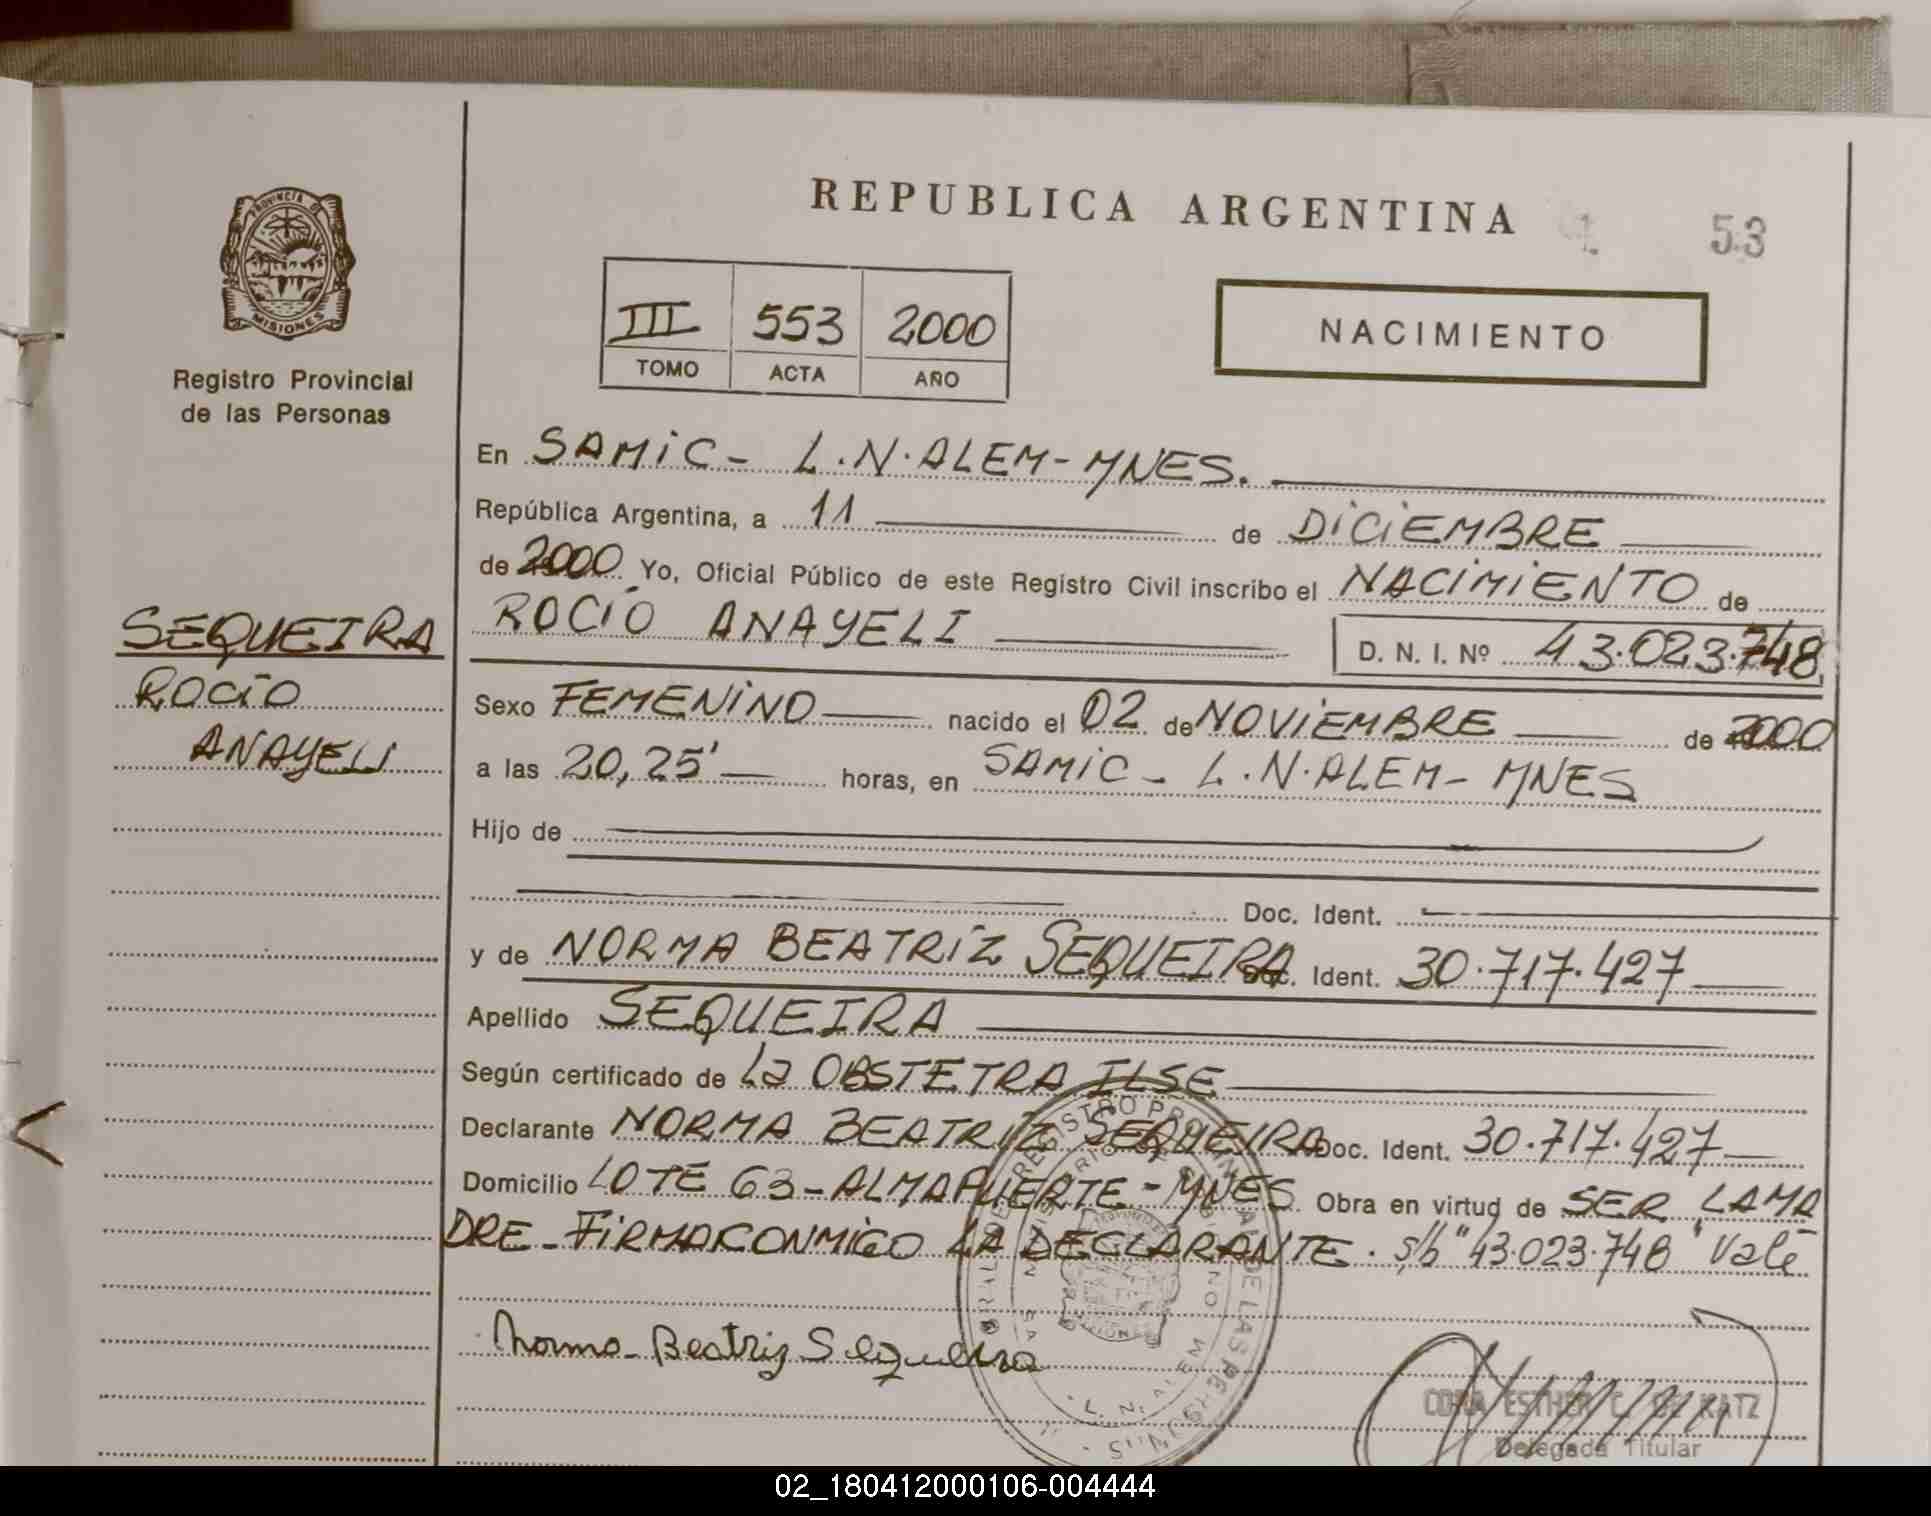 REPUBLICA ARGENTINA
53
PROVINCIA DE
MISIONES
Registro Provincial
de las Personas
III 553 2000
TOMO ACTA AÑO
NACIMIENTO
SEQUEIRA
ROCIO
ANAYELI
En SAMIC - L.N.ALEM - MNES.
República Argentina, a 11 de DICIEMBRE
de 2000 Yo, Oficial Público de este Registro Civil inscribo el NACIMIENTO de
ROCIO ANAYELI D. N. I. Nº 43.023.748
Sexo FEMENINO nacido el 02 de NOVIEMBRE de 2000
a las 20,25' horas, en SAMIC - L.N.ALEM - MNES
Hijo de
Doc. Ident.
y de NORMA BEATRIZ SEQUEIRA Doc. Ident. 30.717.427
Apellido SEQUEIRA
Según certificado de La OBSTETRA ILSE
Declarante NORMA BEATRIZ SEQUEIRA Doc. Ident. 30.717.427
Domicilio LOTE 63 - ALMAFUERTE - MNES Obra en virtud de SER LA MA
DRE - FIRMA CONMIGO LA DECLARANTE. s/b "43.023.748" Vale
Norma Beatriz Sequeira
L. N. ALEM
CORA ESTHER C. DE KATZ
Delegada Titular
02_180412000106-004444